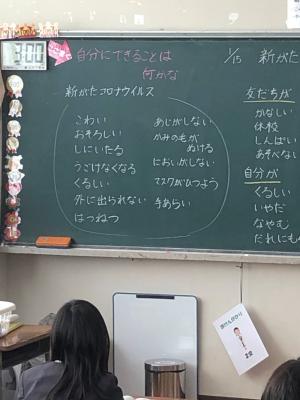 自分にできることは
何かな
1/15 新がた
新がたコロナウイルス
こわい
おそろしい
しにいたる
うごけなくなる
くるしい
外に出られない
はつねつ
あじがしない
かみの毛が
ぬける
においがしない
マスクがひつよう
手あらい
友だちが
かなしい
休校
しんぱい
あそべない
自分が
くるしい
いやだ
なやむ
だれにも